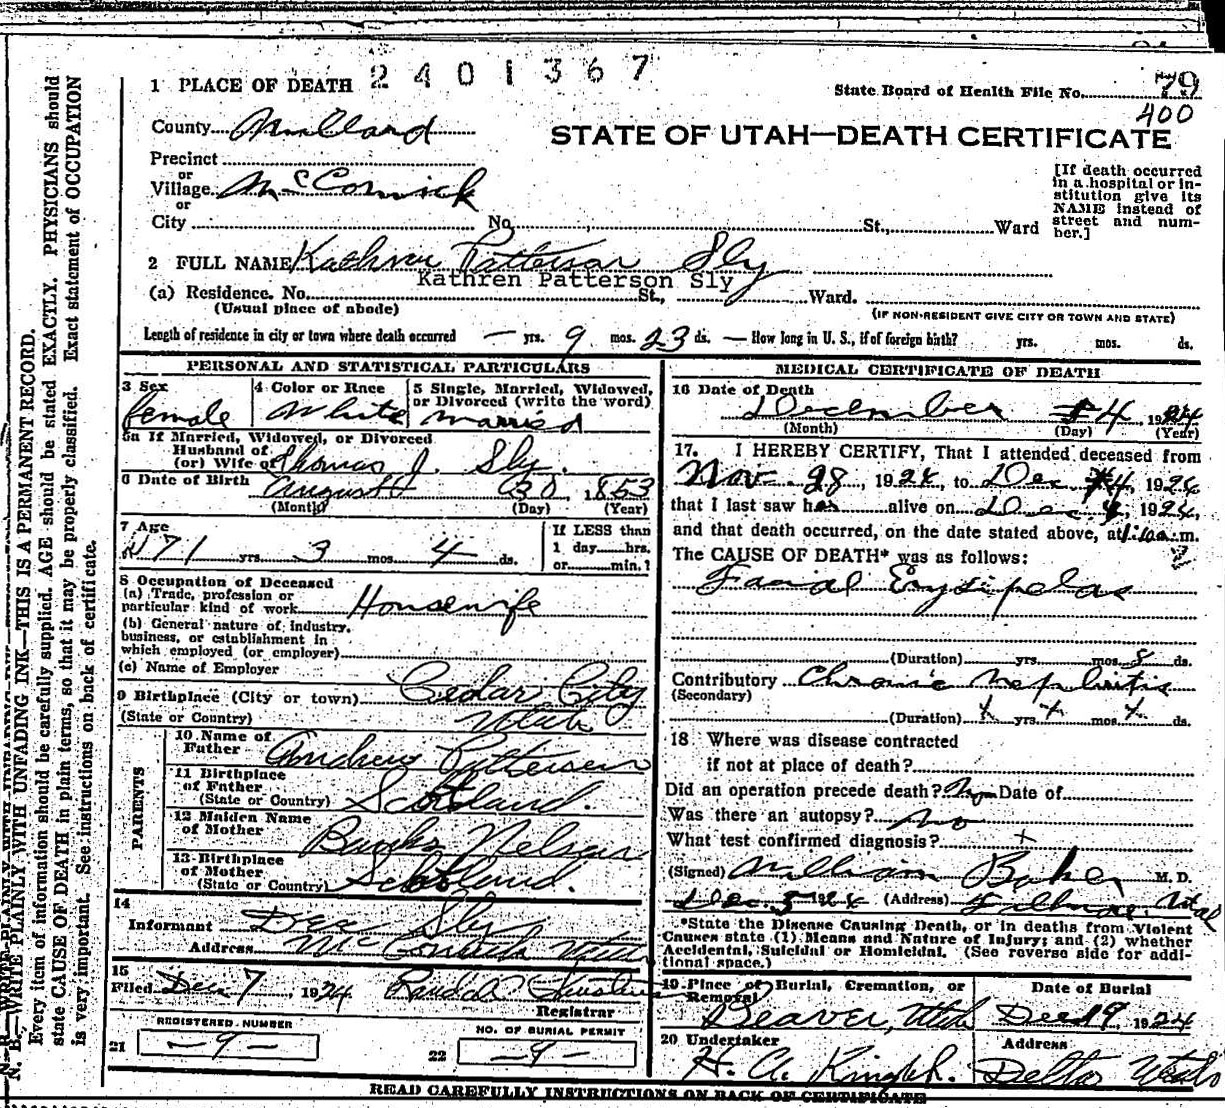 2401367
1 PLACE OF DEATH
State Board of Health File No. 79
400
County Millard
STATE OF UTAH—DEATH CERTIFICATE
Precinct
or
Village McCornick
or
City No. St., Ward
[If death occurred
in a hospital or in-
stitution give its
NAME instead of
street and num-
ber.]
2 FULL NAME Kathren Patterson Sly
Kathren Patterson Sly
(a) Residence. No. St., Ward.
(Usual place of abode)
(IF NON-RESIDENT GIVE CITY OR TOWN AND STATE)
Length of residence in city or town where death occurred — yrs. 9 mos. 23 ds. — How long in U. S., if of foreign birth? yrs. mos. ds.
PERSONAL AND STATISTICAL PARTICULARS
3 Sex
female
4 Color or Race
White
5 Single, Married, Widowed,
or Divorced (write the word)
married
5a If Married, Widowed, or Divorced
Husband of
(or) Wife of Thomas J. Sly.
6 Date of Birth August 30, 1853
(Month) (Day) (Year)
7 Age
71 yrs. 3 mos. 4 ds.
If LESS than
1 day hrs.
or min.?
8 Occupation of Deceased
(a) Trade, profession or
particular kind of work Housewife
(b) General nature of industry,
business, or establishment in
which employed (or employer)
(c) Name of Employer
9 Birthplace (City or town) Cedar City
(State or Country) Utah
PARENTS
10 Name of
Father Andrew Patterson
11 Birthplace
of Father
(State or Country) Scotland.
12 Maiden Name
of Mother Nelson
13 Birthplace
of Mother
(State or Country) Scotland.
14
Informant Dee Sly
Address McCornick Utah
15
Filed Dec 7, 1924
Registrar
REGISTERED NUMBER
21 —9—
NO. OF BURIAL PERMIT
22 —9—
MEDICAL CERTIFICATE OF DEATH
16 Date of Death
December 4, 1924
(Month) (Day) (Year)
17. I HEREBY CERTIFY, That I attended deceased from
Nov. 28, 1924, to Dec. 4, 1924
that I last saw her alive on Dec. 4, 1924,
and that death occurred, on the date stated above, at m.
The CAUSE OF DEATH* was as follows:
Facial Erysipelas
(Duration) yrs. mos. 8 ds.
Contributory Chronic Nephritis
(Secondary)
(Duration) yrs. mos. ds.
18 Where was disease contracted
if not at place of death?
Did an operation precede death? No Date of
Was there an autopsy? No
What test confirmed diagnosis?
(Signed) William Baker M. D.
Dec. 5 1924 (Address) Fillmore, Utah
*State the Disease Causing Death, or in deaths from Violent
Causes state (1) Means and Nature of Injury; and (2) whether
Accidental, Suicidal or Homicidal. (See reverse side for addi-
tional space.)
19 Place of Burial, Cremation, or
Removal
Beaver, Utah
Date of Burial
Dec 9 1924
20 Undertaker
H. A.
Address
Delta Utah
READ CAREFULLY INSTRUCTIONS ON BACK OF CERTIFICATE
N. B.—WRITE PLAINLY WITH UNFADING INK—THIS IS A PERMANENT RECORD.
Every item of information should be carefully supplied. AGE should be stated EXACTLY. PHYSICIANS should
state CAUSE OF DEATH in plain terms, so that it may be properly classified. Exact statement of OCCUPATION
is very important. See instructions on back of certificate.